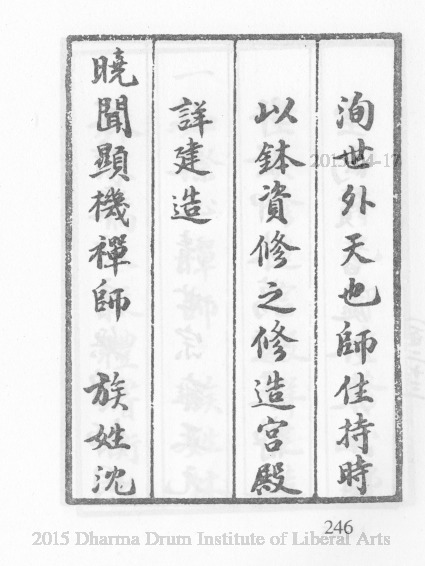 洵世外天也師住持時
以鉢資修之修造宮殿
詳建造
曉聞顯機禪師　族姓沈
246
2015 Dharma Drum Institute of Liberal Arts